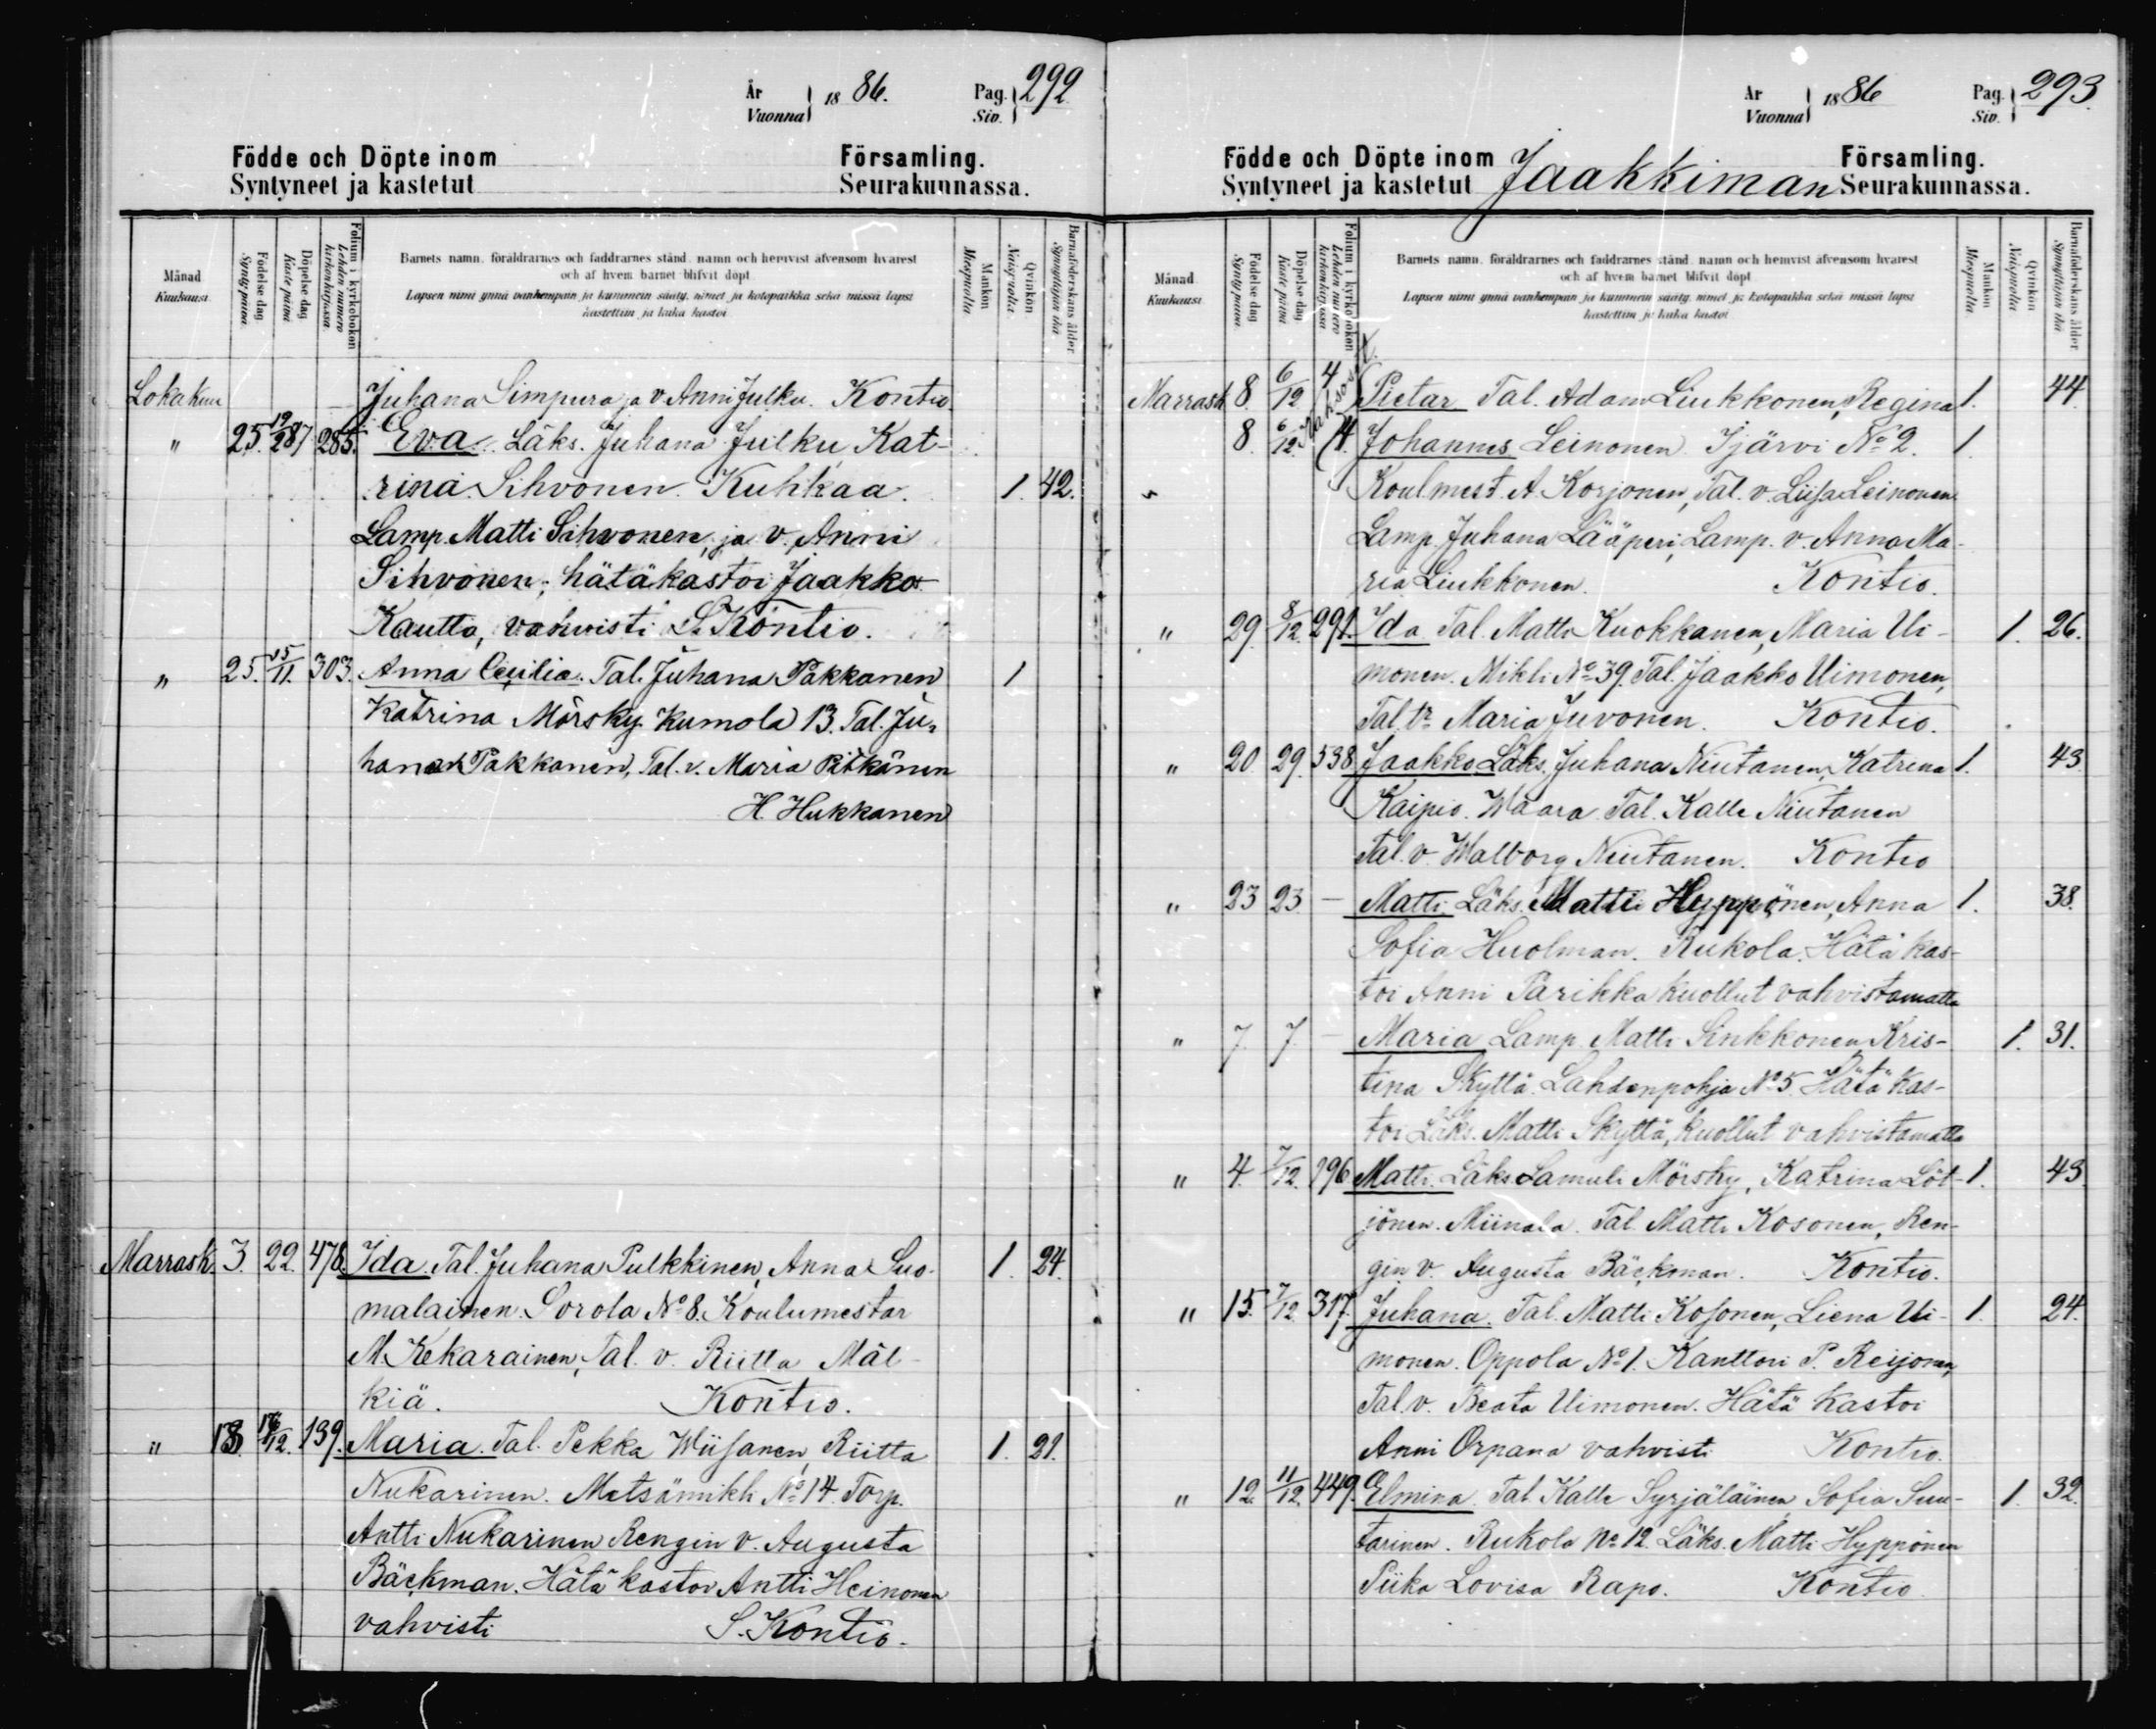 År Vuonna 1886. Pag. Siv. 292
Födde och Döpte inom Församling.
Syntyneet ja kastetut Seurakunnassa.
Månad Kuukausi
Födelse dag Synty päivä
Döpelse dag Kaste päivä
Folium i kyrkoboken Lehden numero kirkonkirjassa
Barnets namn, föräldrarnes och faddrarnes stånd, namn och hemvist äfvensom hvarest
och af hvem barnet blifvit döpt
Lapsen nimi ynnä vanhempain ja kummein sääty, nimet ja kotopaikka sekä missä lapsi
kastettiin ja kuka kastoi
Mankön Miespuolia
Qvinkön Naispuolia
Barnaföderskans ålder Synnyttäjän ikä
Lokakuu Juhana Simpura ja v. Anni Julku. Kontio.
" 25. 19/2 87 285. Eva. Läks. Juhana Julku, Kat-
rina Sihvonen. Kuhkaa. 1. 42.
Lamp. Matti Sihvonen, ja v. Anni
Sihvonen; hätäkastoi Jaakko
Kautto, vahvisti S. Kontio.
" 25. 15/11. 303. Anna Cecilia. Tal. Juhana Pakkanen 1
Katrina Mörsky. Kumola 13. Tal. Ju-
hana Pakkanen, Tal. v. Maria Pitkänen
H. Hukkanen
Marrask. 3. 22. 478. Ida. Tal. Juhana Pulkkinen, Anna Suo- 1. 24.
malainen. Sorola No 8. Koulumestar
M. Kekarainen, Tal. v. Riitta Mäl-
kiä. Kontio.
" 18. /12. 139. Maria. Tal. Pekka Wiisanen, Riitta 1. 21.
Nukarinen. Metsämikli No 14. Torp.
Antti Nukarinen Rengin v. Augusta
Bäckman. Hätä kastoi Antti Heinonen
vahvisti S. Kontio.
År Vuonna 1886 Pag. Siv. 293.
Födde och Döpte inom Jaakkiman Församling.
Syntyneet ja kastetut Seurakunnassa.
Månad Kuukausi
Födelse dag Synty päivä
Döpelse dag Kaste päivä
Folium i kyrkoboken Lehden numero kirkonkirjassa
Barnets namn, föräldrarnes och faddrarnes stånd, namn och hemvist äfvensom hvarest
och af hvem barnet blifvit döpt
Lapsen nimi ynnä vanhempain ja kummein sääty, nimet ja kotopaikka sekä missä lapsi
kastettiin ja kuka kastoi
Mankön Miespuolia
Qvinkön Naispuolia
Barnaföderskans ålder Synnyttäjän ikä
Marrask 8. 6/12 4 Kaksoset. Pietar Tal. Adam Liukkonen, Regina 1. 44.
8. 6/12. 4. Johannes Leinonen Ijärvi No 2. 1.
Koulmest. A. Korjonen, Tal. v. Liisa Leinonen
Lamp. Juhana Lääperi, Lamp. v. Anna Ma-
ria Liukkonen. Kontio.
" 29. 8/12. 291. Ida Tal. Matti Kuokkanen, Maria Ui- 1. 26.
monen. Mikli No 39. Tal. Jaakko Uimonen,
Tal. tr Maria Juvonen. Kontio.
" 20. 29. 538. Jaakko Läks. Juhana Niutanen, Katrina 1. 43
Kaipio. Waara Tal. Kalle Niutanen
Tal. v. Walborg Niutanen. Kontio
" 23 23 — Matti. Läks. Matti Hyppönen, Anna 1. 38.
Sofia Huolman. Rukola. Hätä kas-
toi Anni Parikka kuollut vahvistamatta
" 7. 7. — Maria Lamp. Matti Sinkkonen Kris- 1. 31.
tina Skyttä. Lahdenpohja No 5 Hätä kas-
toi Läks. Matti Skyttä, kuollut vahvistamatta
" 4. 7/12. 196 Matti. Läks. Samuli Mörsky, Katrina Löt- 1. 43
jönen. Miinala. Tal. Matti Kosonen, Ren-
gin v. Augusta Bäckman. Kontio.
" 15. 7/12. 317. Juhana. Tal. Matti Kosonen, Liena Ui- 1. 24.
monen. Oppola No 1. Kanttori P. Reijonen,
Tal. v. Beata Uimonen. Hätä kastoi
Anni Orpana vahvisti Kontio.
" 12. 11/12. 449. Elmina. Tal. Kalle Syrjäläinen Sofia Suu- 1. 32.
tarinen. Rukola No 12. Läks. Matti Hyppönen
Piika Lovisa Rapo. Kontio.